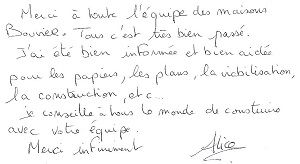 Merci à toute l'équipe des maisons
Bouvier. Tous c'est très bien passé.
J'ai été bien informée et bien aidée
pour les papiers, les plans, la viabilisation,
la construction, etc...
je conseille à tous le monde de construire
avec votre équipe.
Merci infiniment
Alice